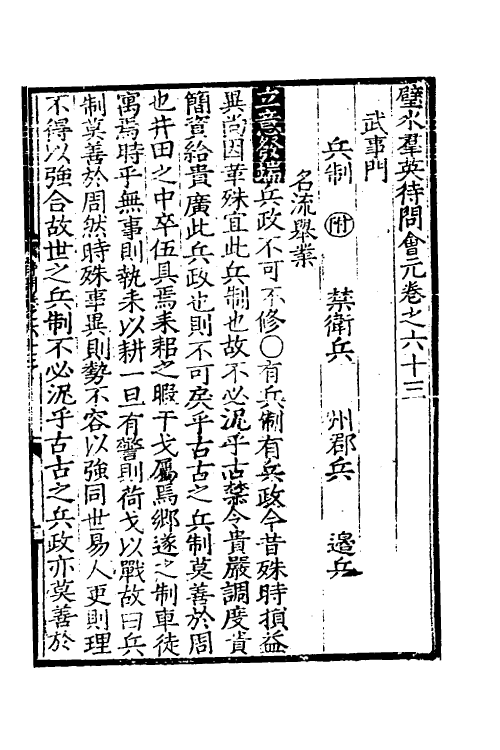 璧水羣英待問會元卷之六十三
武事門
兵制 附 禁衛兵 州郡兵 邊兵
名流舉業
立意發端兵政不可不修○有兵制有兵政今昔殊時損益
異尚因革殊宜此兵制也故不必泥乎古禁令貴嚴調度貴
簡資給貴廣此兵政也則不可戾乎古古之兵制莫善於周
也井田之中卒伍具焉耒耜之暇干戈屬焉鄉遂之制車徒
寓焉時乎無事則執耒以耕一旦有警則荷戈以戰故曰兵
制莫善於周然時殊事異則勢不容以強同世易人更則理
不得以強合故世之兵制不必泥乎古古之兵政亦莫善於